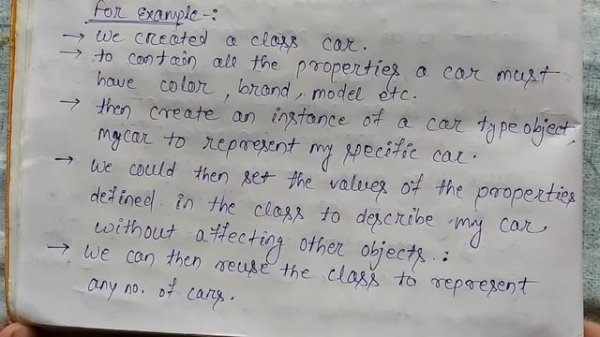 for example -:
→ We created a class car.
→ to contain all the properties a car must
have color, brand, model etc.
→ then create an instance of a car type object,
mycar to represent my specific car.
→ We could then set the values of the properties
defined in the class to describe my car
without affecting other objects.:
→ We can then reuse the class to represent
any no. of cars.